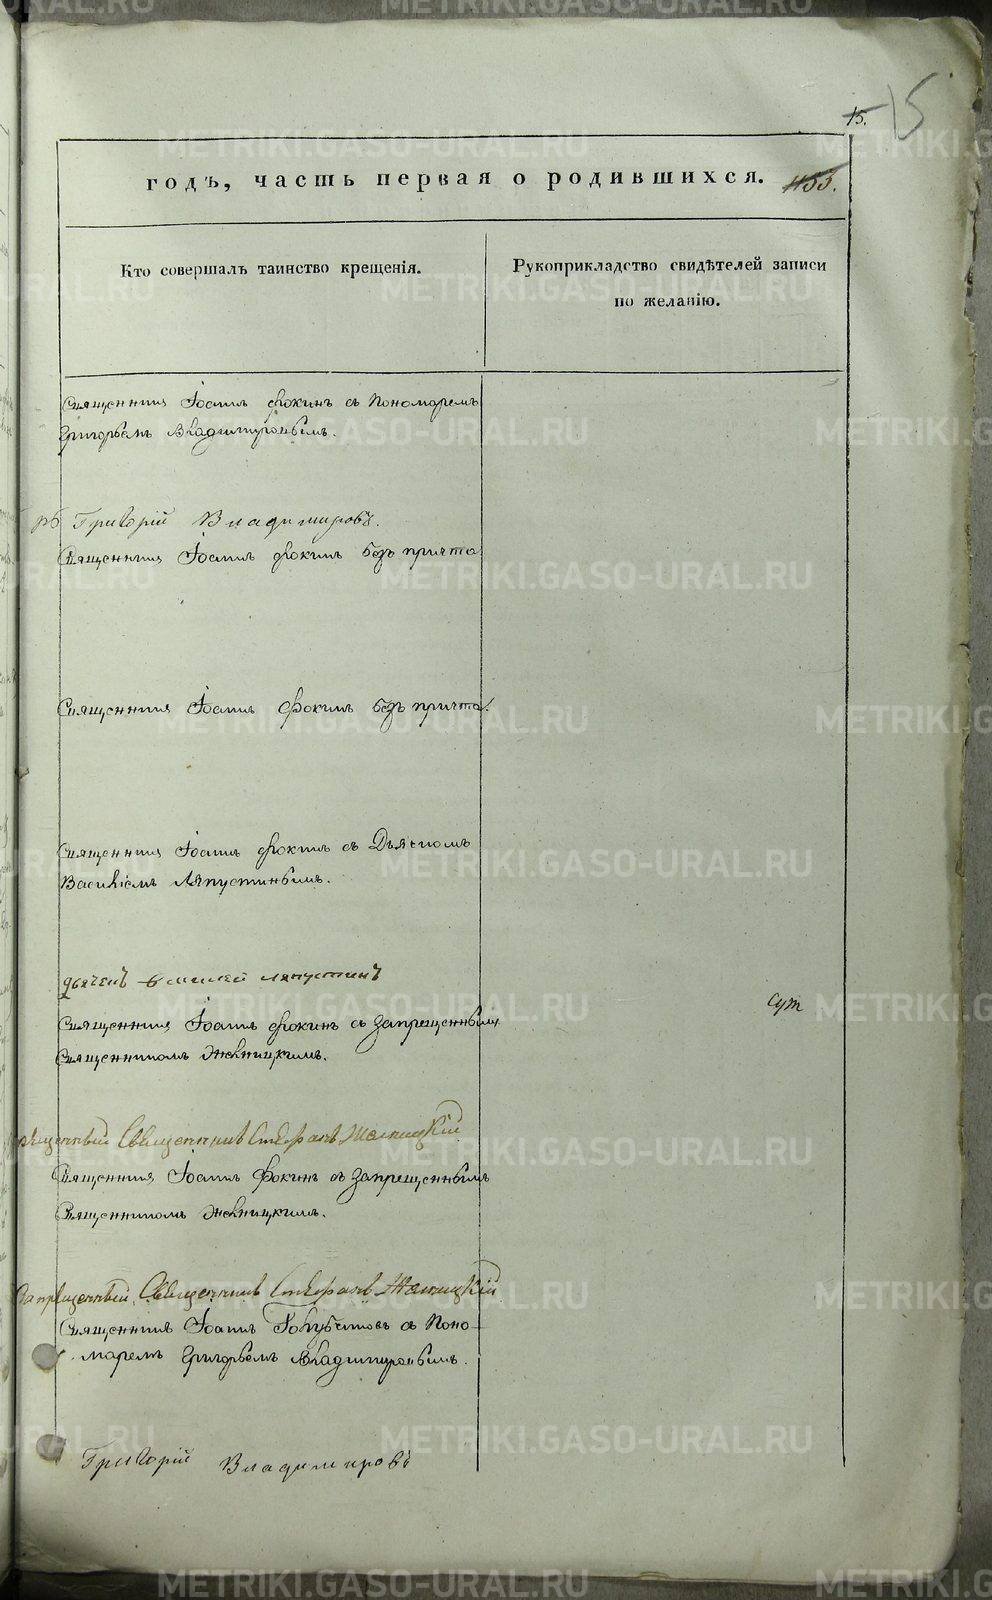 15. 15
годъ, часть первая о родившихся. 1155.
Кто совершалъ таинство крещенія.
Рукоприкладство свидѣтелей записи
по желанію.
Священникъ Іоаннъ Фокинъ съ Пономаремъ
Григорьемъ Владимировымъ.
Григорій Владимировъ.
Священникъ Іоаннъ Фокинъ безъ причта
Священникъ Іоаннъ Фокинъ безъ причта.
Священникъ Іоаннъ Фокинъ съ Дьячкомъ
Василіемъ Ляпустинымъ.
дьячекъ Василей Ляпустинъ
Священникъ Іоаннъ Фокинъ съ запрещеннымъ
Священникомъ
Священникъ Стефанъ
Священникъ Іоаннъ Фокинъ съ запрещеннымъ
Священникомъ
Запрещенный Священникъ Стефанъ
Священникъ Іоаннъ Голубчиковъ съ Поно-
маремъ Григорьемъ Владимировымъ.
Григорій Владимировъ
METRIKI.GASO-URAL.RU